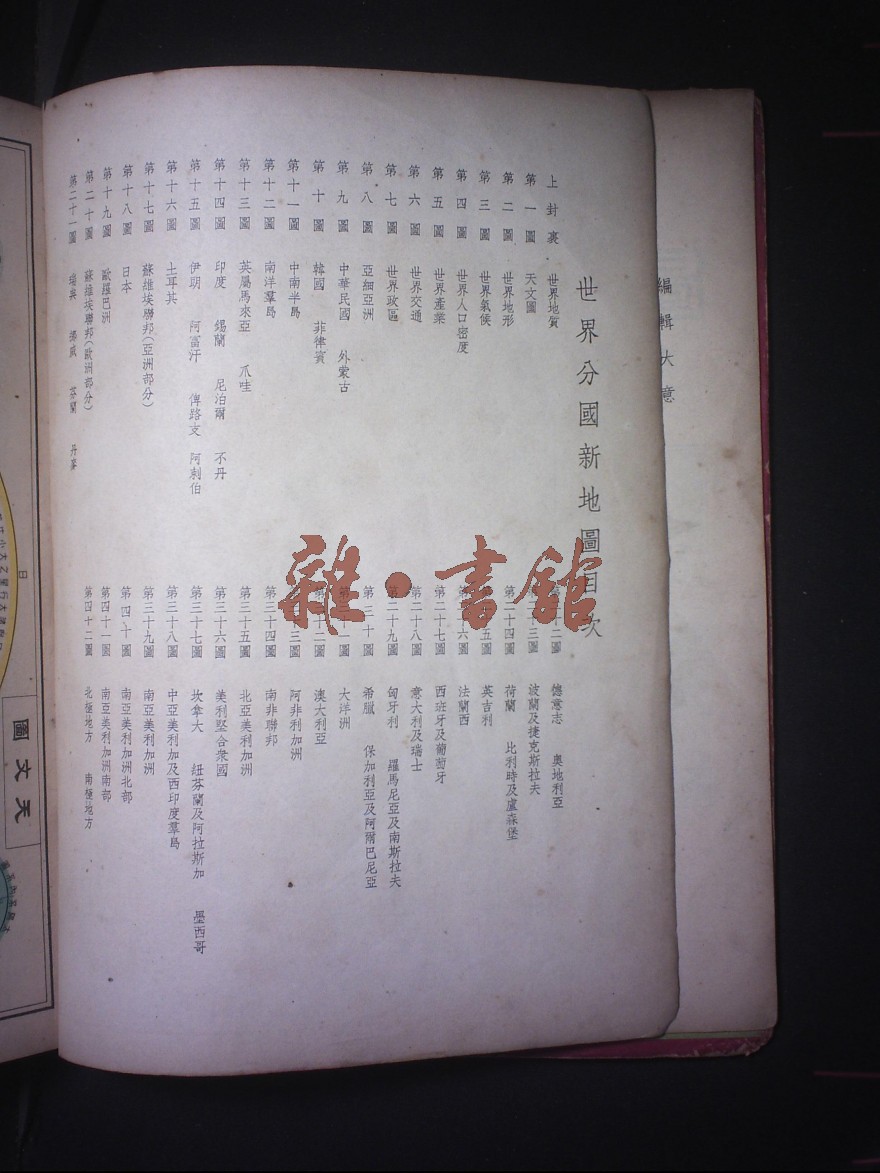 編輯大意
世界分國新地圖目次
上封裏 世界地質
第一圖 天文圖
第二圖 世界地形
第三圖 世界氣候
第四圖 世界人口密度
第五圖 世界產業
第六圖 世界交通
第七圖 世界政區
第八圖 亞細亞洲
第九圖 中華民國 外蒙古
第十圖 韓國 菲律賓
第十一圖 中南半島
第十二圖 南洋羣島
第十三圖 英屬馬來亞 爪哇
第十四圖 印度 錫蘭 尼泊爾 不丹
第十五圖 伊朗 阿富汗 俾路支 阿剌伯
第十六圖 土耳其
第十七圖 蘇維埃聯邦(亞洲部分)
第十八圖 日本
第十九圖 歐羅巴洲
第二十圖 蘇維埃聯邦(歐洲部分)
第二十一圖 瑞典 挪威 芬蘭 丹麥
二圖 德意志 奧地利亞
三圖 波蘭及捷克斯拉夫
第二十四圖 荷蘭 比利時及盧森堡
五圖 英吉利
第 六圖 法蘭西
西班牙及葡萄牙
第二十八圖 意大利及瑞士
第二十九圖 匈牙利 羅馬尼亞及南斯拉夫
第三十圖 希臘 保加利亞及阿爾巴尼亞
第 一圖 大洋洲
第 十二圖 澳大利亞
第 三圖 阿非利加洲
第三十四圖 南非聯邦
第三十五圖 北亞美利加洲
第三十六圖 美利堅合衆國
第三十七圖 坎拿大 紐芬蘭及阿拉斯加 墨西哥
第三十八圖 中亞美利加及西印度羣島
第三十九圖 南亞美利加洲
第四十圖 南亞美利加洲北部
第四十一圖 南亞美利加洲南部
第四十二圖 北極地方 南極地方
雜·書館
天文圖
日